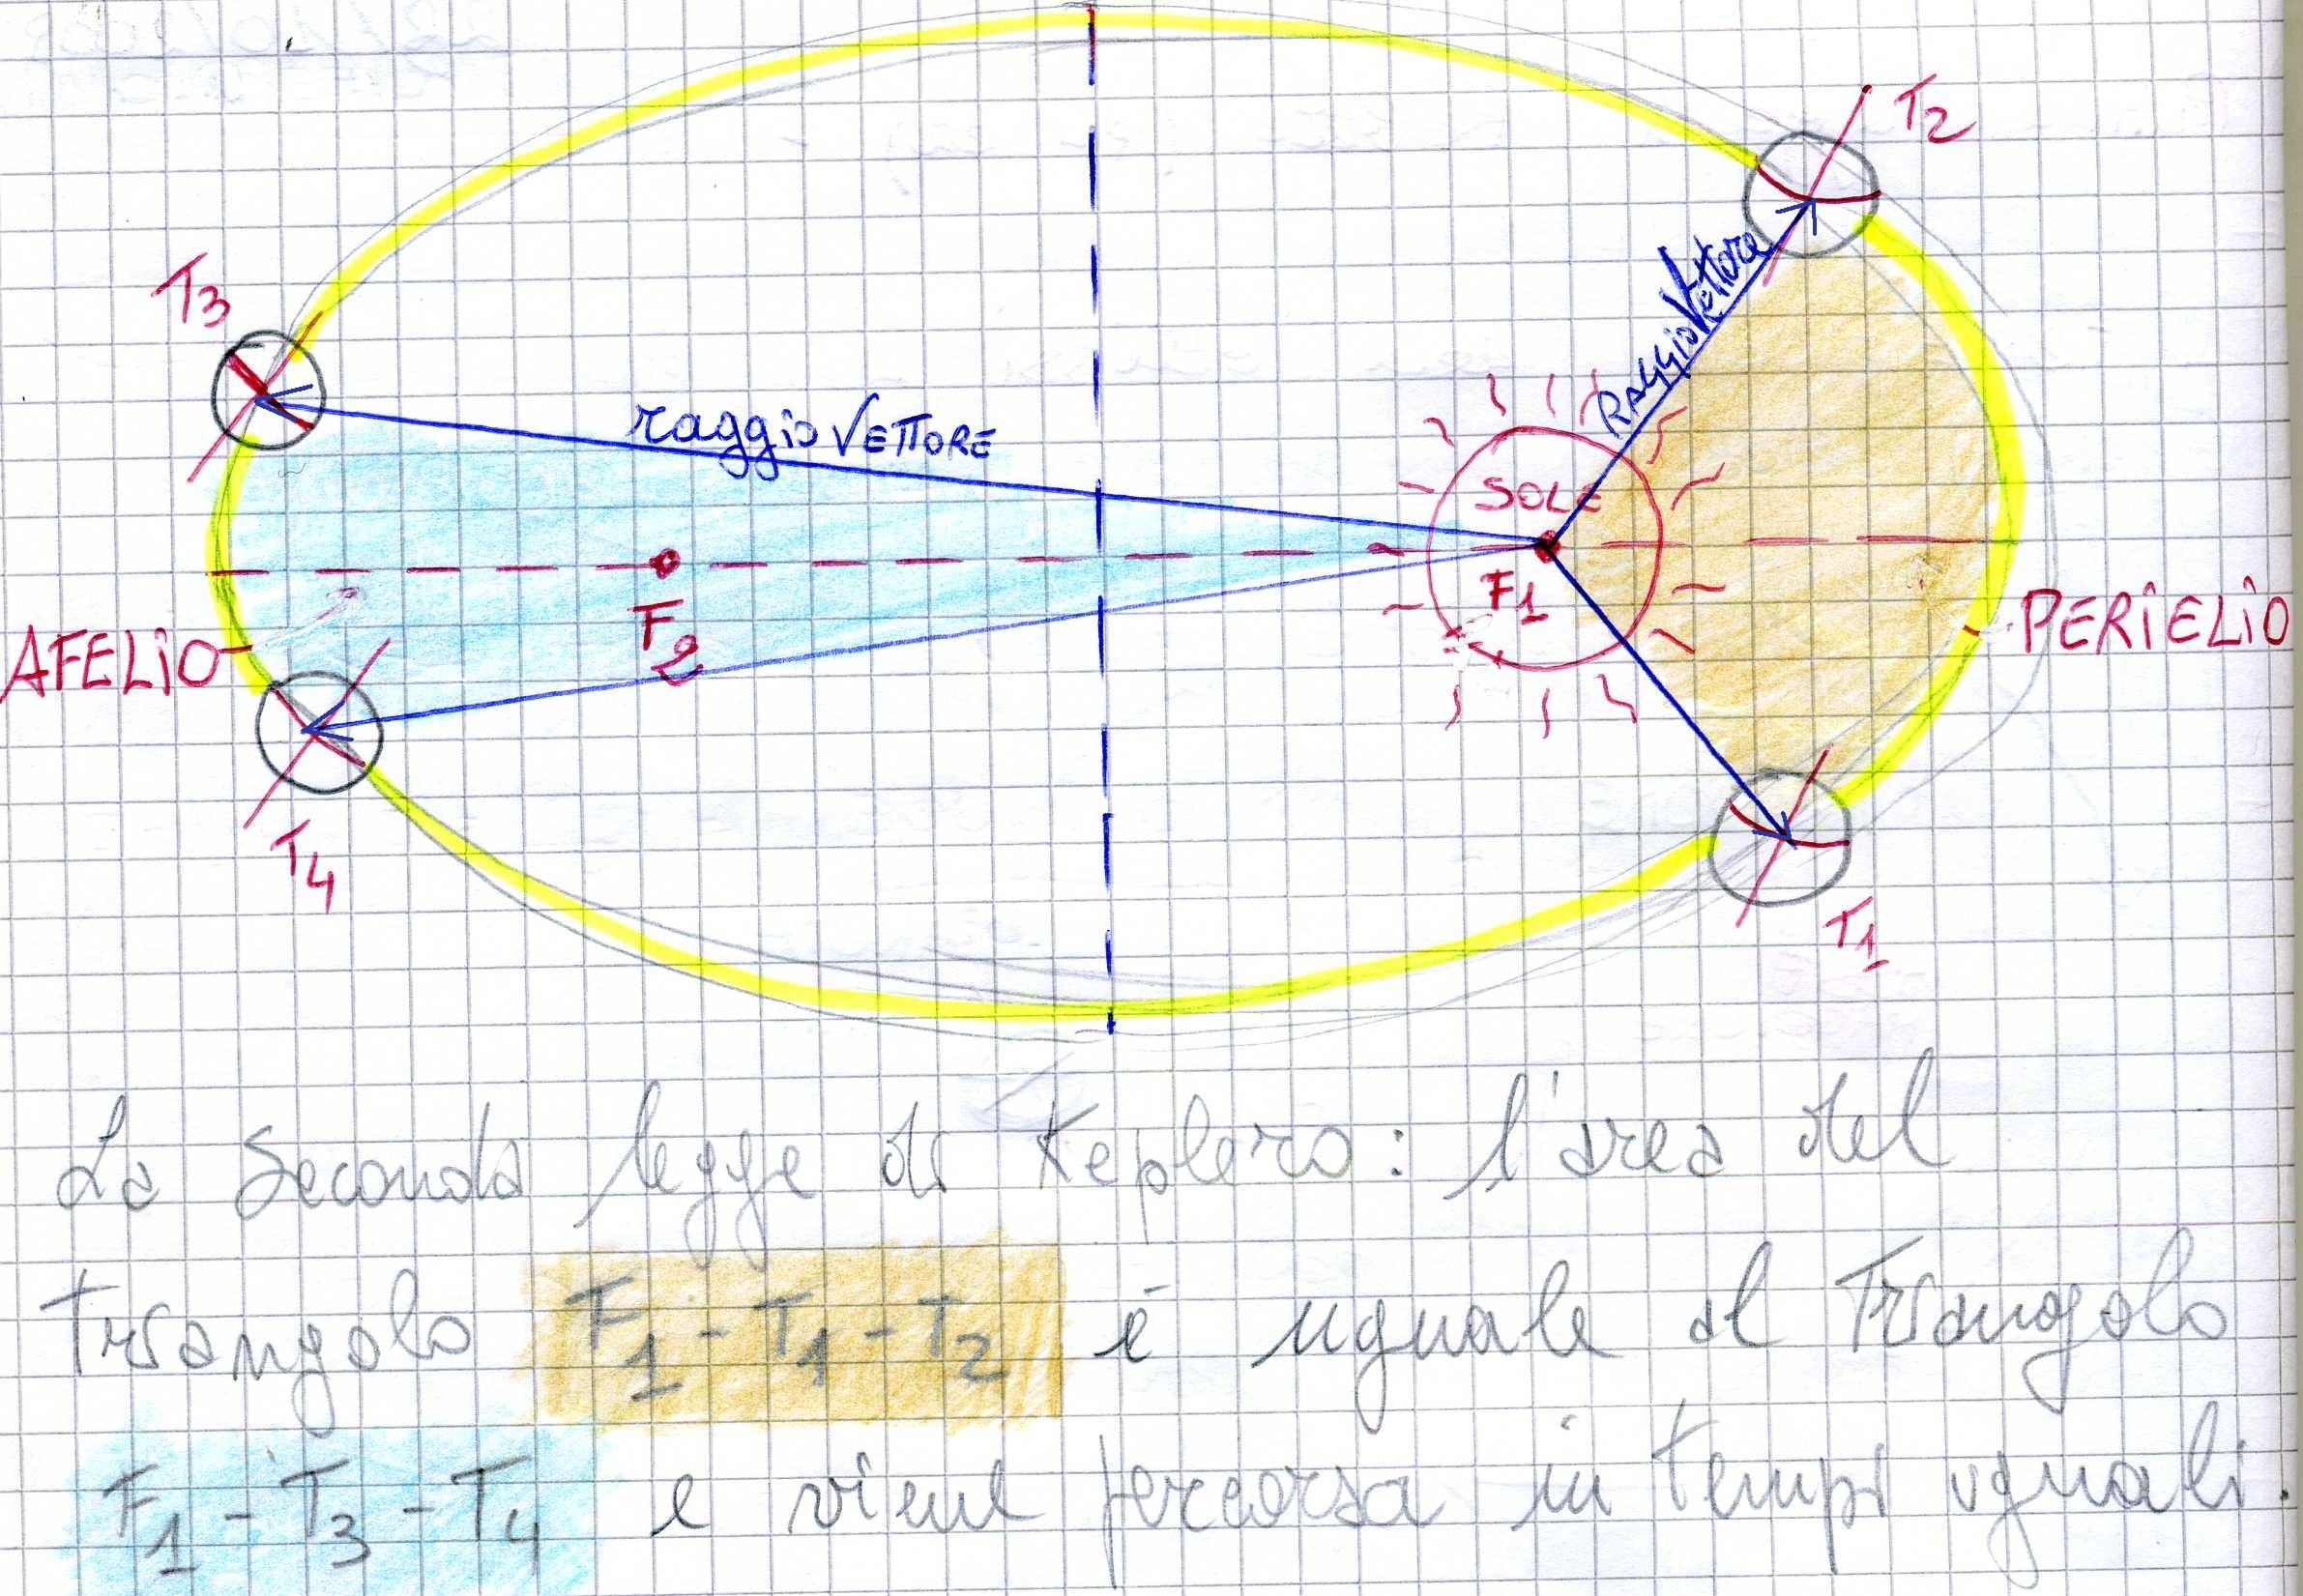 T2
T3
Raggio Vettore
raggio Vettore
SOLE
F1
F2
AFELIO
PERIELIO
T4
T1
La Seconda legge di Keplero: l'area del
Triangolo F1-T1-T2 è uguale al Triangolo
F1-T3-T4 e viene percorsa in tempi uguali.